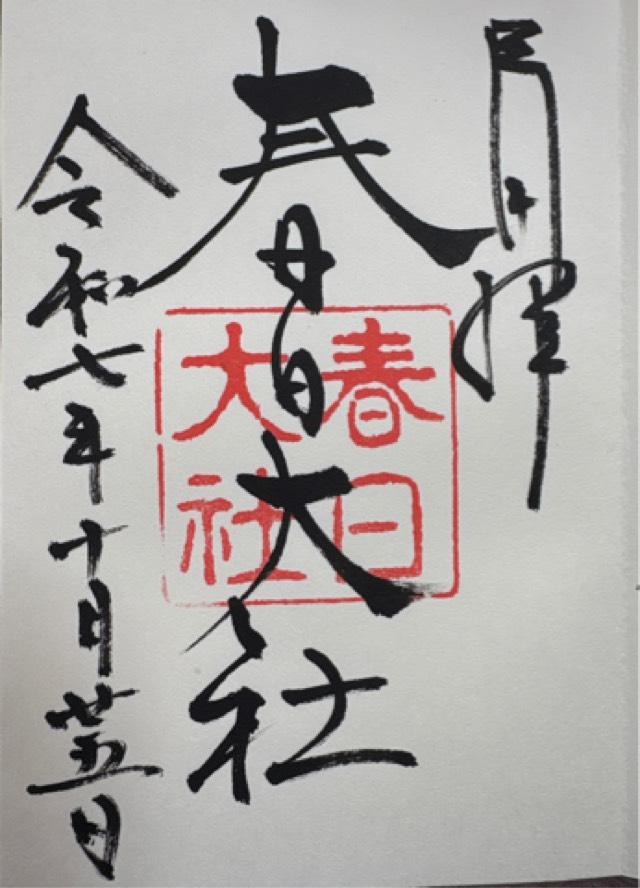 奉拝
春日大社
春日
大社
令和七年十月廿五日